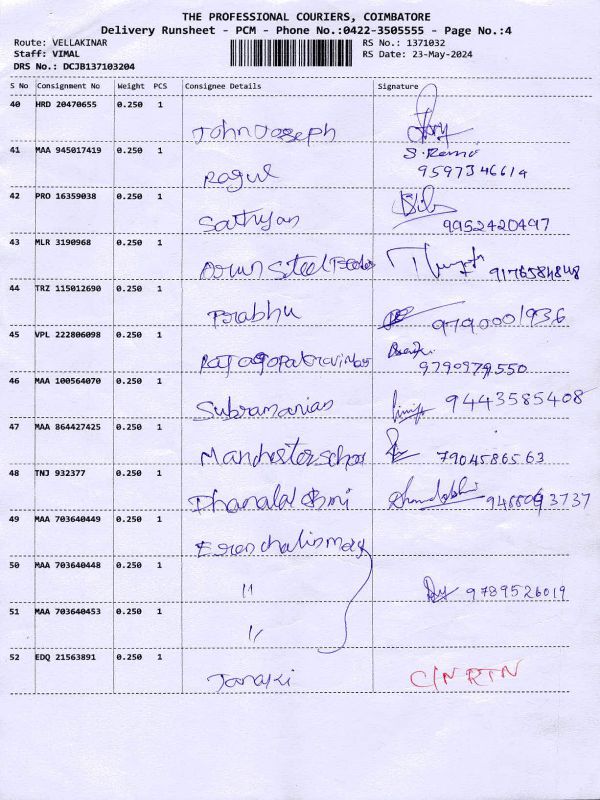 THE PROFESSIONAL COURIERS, COIMBATORE
Delivery Runsheet - PCM - Phone No.:0422-3505555 - Page No.:4
Route: VELLAKINAR RS No.: 1371032
Staff: VIMAL RS Date: 23-May-2024
DRS No.: DCJB137103204
S No Consignment No Weight PCS Consignee Details Signature
40 HRD 20470655 0.250 1
John Joseph
41 MAA 945017419 0.250 1 S. Ramo
Ragul 9597346614
42 PRO 16359038 0.250 1
Sathyan 9952420497
43 MLR 3190968 0.250 1
Arun Steel 9176584848
44 TRZ 115012690 0.250 1
Prabhu 9790001936
45 VPL 222806098 0.250 1
9790979550
46 MAA 100564070 0.250 1
Subramanian 9443585408
47 MAA 864427425 0.250 1
Manchester 7904586563
48 TNJ 932377 0.250 1
Dhanalakshmi
49 MAA 703640449 0.250 1
50 MAA 703640448 0.250 1
" 9789526019
51 MAA 703640453 0.250 1
"
52 EDQ 21563891 0.250 1
Janaki C/N RTN